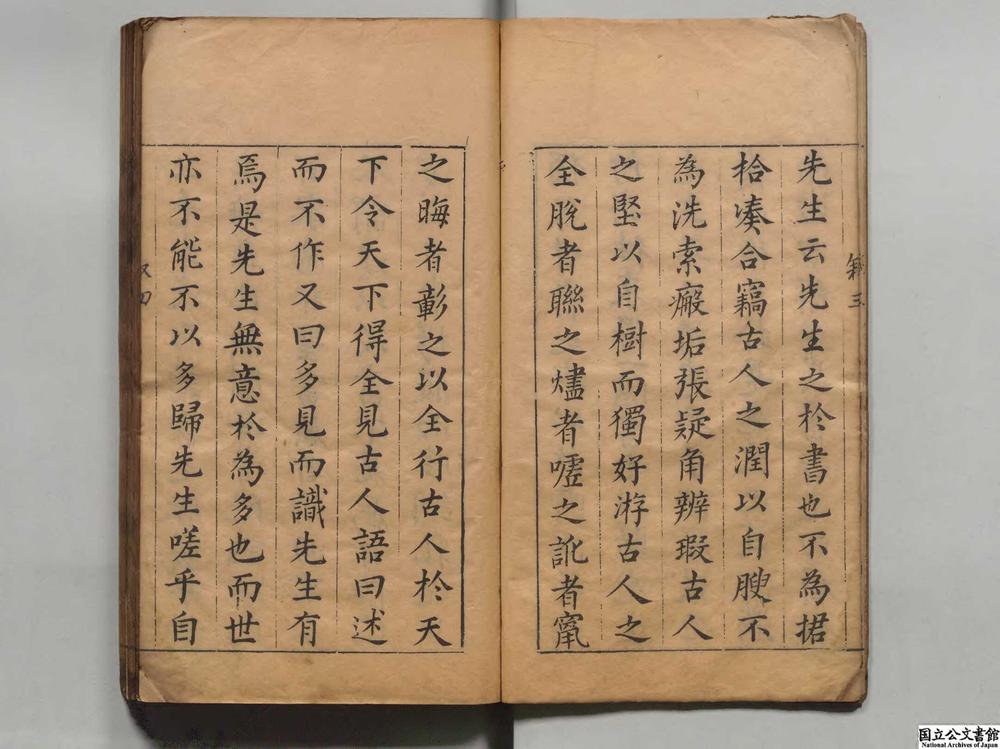 先生云先生之於書也不為捃
拾凑合竊古人之潤以自腴不
為洗索瘢垢張疑角辨瑕古人
之堅以自樹而獨好游古人之
全脫者聯之燼者噓之訛者竄
之晦者彰之以全行古人於天
下令天下得全見古人語曰述
而不作又曰多見而識先生有
焉是先生無意於為多也而世
亦不能不以多歸先生嗟乎自
国立公文書館
National Archives of Japan